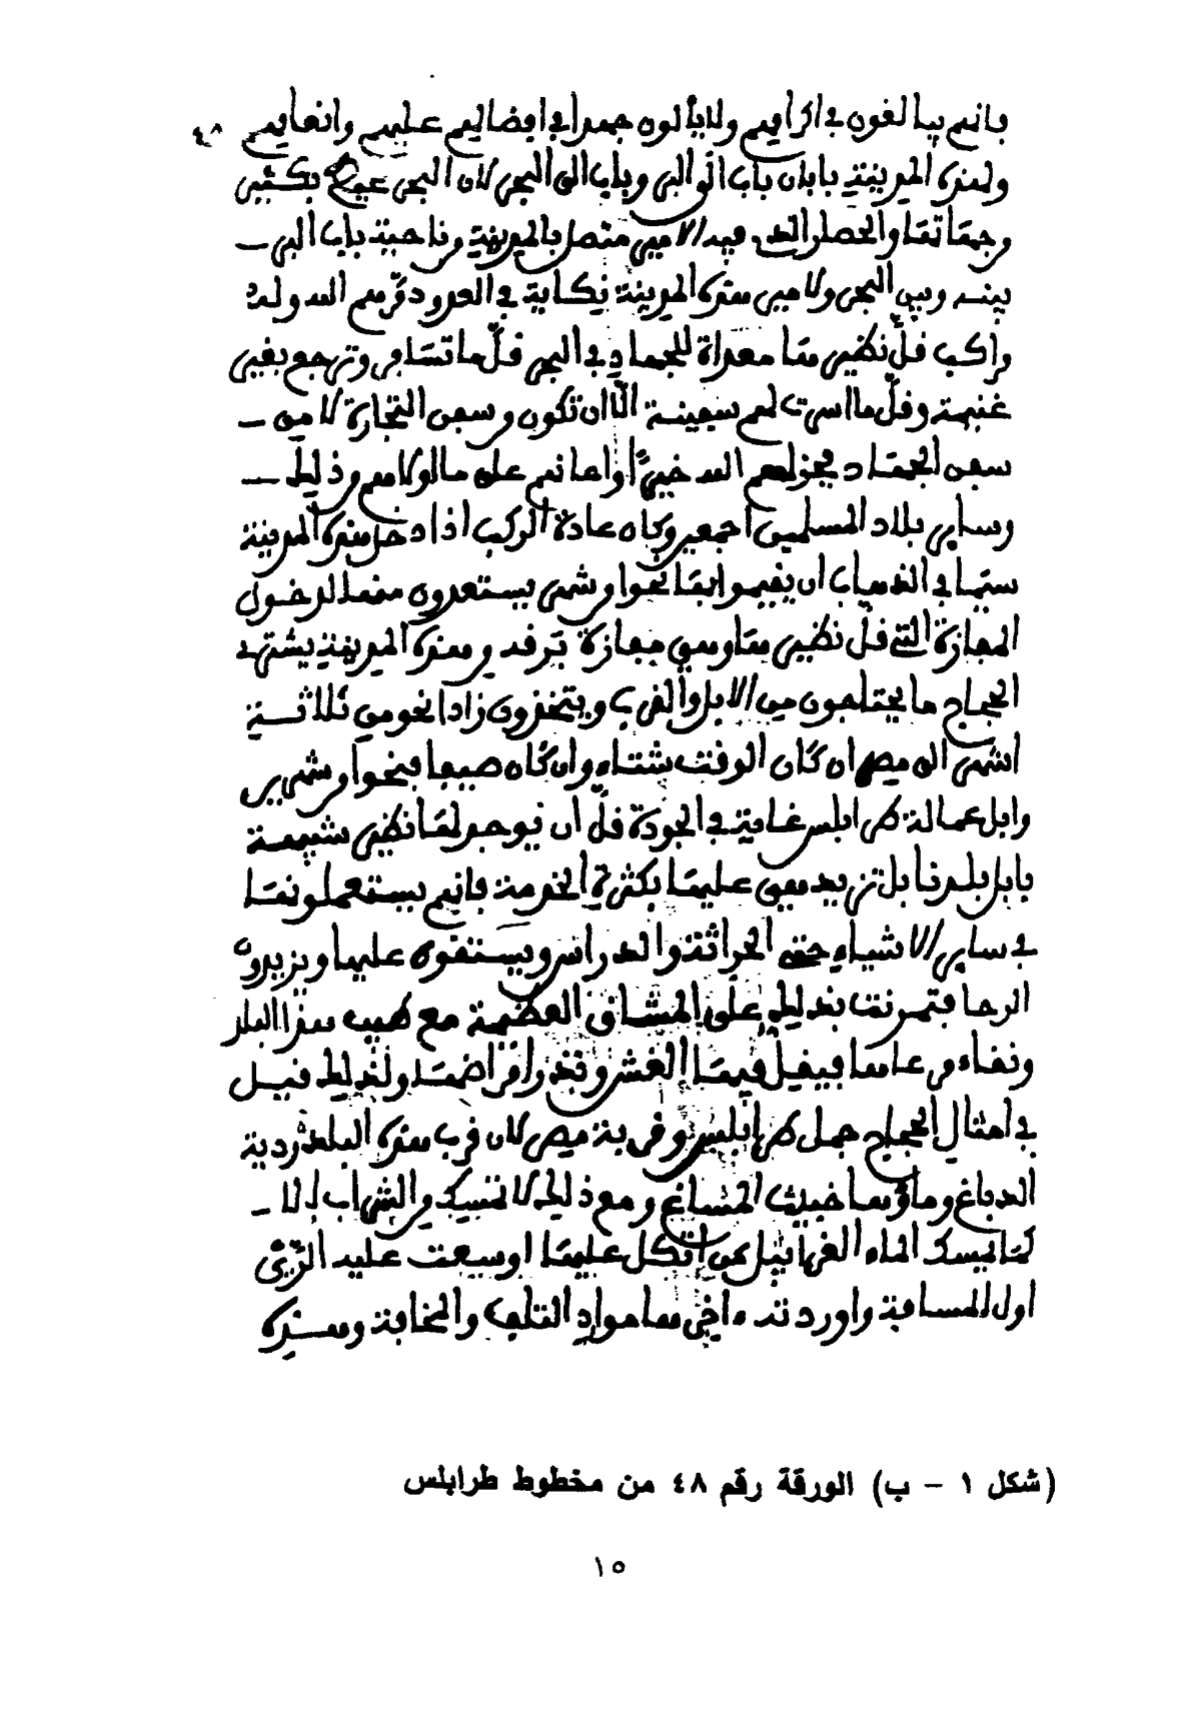 فانهم يبالغون في اكرامهم ولا يألون جهدا في افضالهم عليهم وانعامهم
٤٨
ولهذه المدينة بابان باب الى البر وباب الى البحر لان البحر بكثير
جهاتها والحصار الذي فيه الامير متصل بالمدينة من ناحية باب البر
بينه وبين البحر ولامير هذه المدينة نكاية في العدو دمرهم الله وله
مراكب قل نظيرها معداة للجهاد في البحر قل ما تسافر وترجع بغير
غنيمة وقل ما اسرت لهم سفينة الا ان تكون من سفن التجارة لا من
سفن الجهاد فجزاهم الله خيرا واعانهم على ما اولاهم من ذلك
وساير بلاد المسلمين اجمعين وكان عادة الركب اذا دخل هذه المدينة
سيما في الذهاب ان يقيموا بها نحوا من شهر يستعدون منها لدخول
المفازة التي قل نظيرها وهي مفازة برقة ومن هذه المدينة يشتري
الحجاج ما يحتاجون من الابل والقرب ويتخذون زادا نحو من ثلاثة
اشهر الى مصر ان كان الوقت شتاء وان كان صيفا فنحوا من شهرين
وابل عمالة طرابلس غاية في الجودة قل ان يوجد لها نظير شبيهة
بابل بلدنا بل تزيد هي عليها بكثرة الخدمة فانهم يستعملونها
في ساير الاشياء حتى الحراثة والدراس ويستقون عليها ويديرون
الرحا فتمرنت بذلك على المشاق العظيمة مع طيب هذا البلد
ونقاء مرعاها فيقل فيها الغش وتندر امراضها ولذلك قيل
في امثال الحجاج جمل طرابلس وقربة مصر لان قرب هذه البلد ردية
الدباغ وماؤها خبيث المساغ ومع ذلك لا تمسك من الشراب الا
كما يمسك الماء الغرابيل من اتكل عليها اوسعت عليه الري
اول المسافة واوردته ءاخرها موارد التلف والمخافة وهذه
(شكل ١ - ب) الورقة رقم ٤٨ من مخطوط طرابلس
١٥